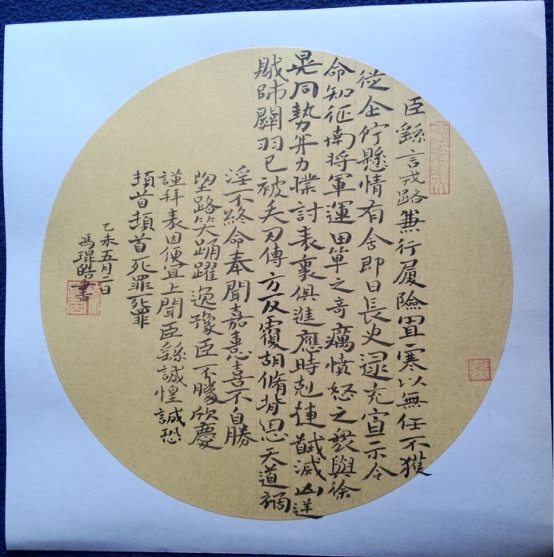 臣繇言戎路兼行履險冒寒以無任不獲
從企佇懸情有舍即日長史逯充宣示令
命知征南將軍運田單之奇厲憤怒之衆與徐
晃同勢并力撲討表裏俱進應時剋捷馘滅凶逆
賊帥關羽已被矢刃傅方反覆胡脩背恩天道禍
淫不終命奉聞嘉憙喜不自勝
望路笑踊躍逸豫臣不勝欣慶
謹拜表因便宜上聞臣繇誠惶誠恐
頓首頓首死罪死罪
乙未五月二日
馮琨皓書